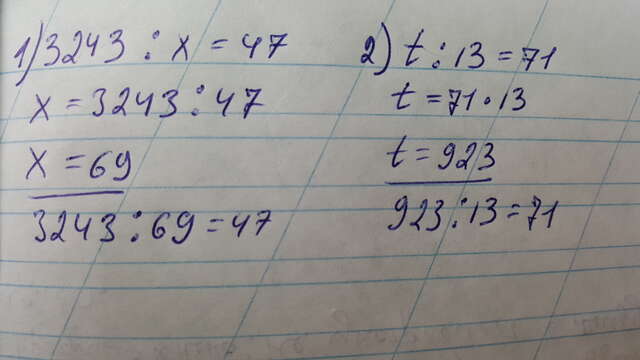 1) 3243 : x = 47
x = 3243 : 47
x = 69
3243 : 69 = 47
2) t : 13 = 71
t = 71 · 13
t = 923
923 : 13 = 71